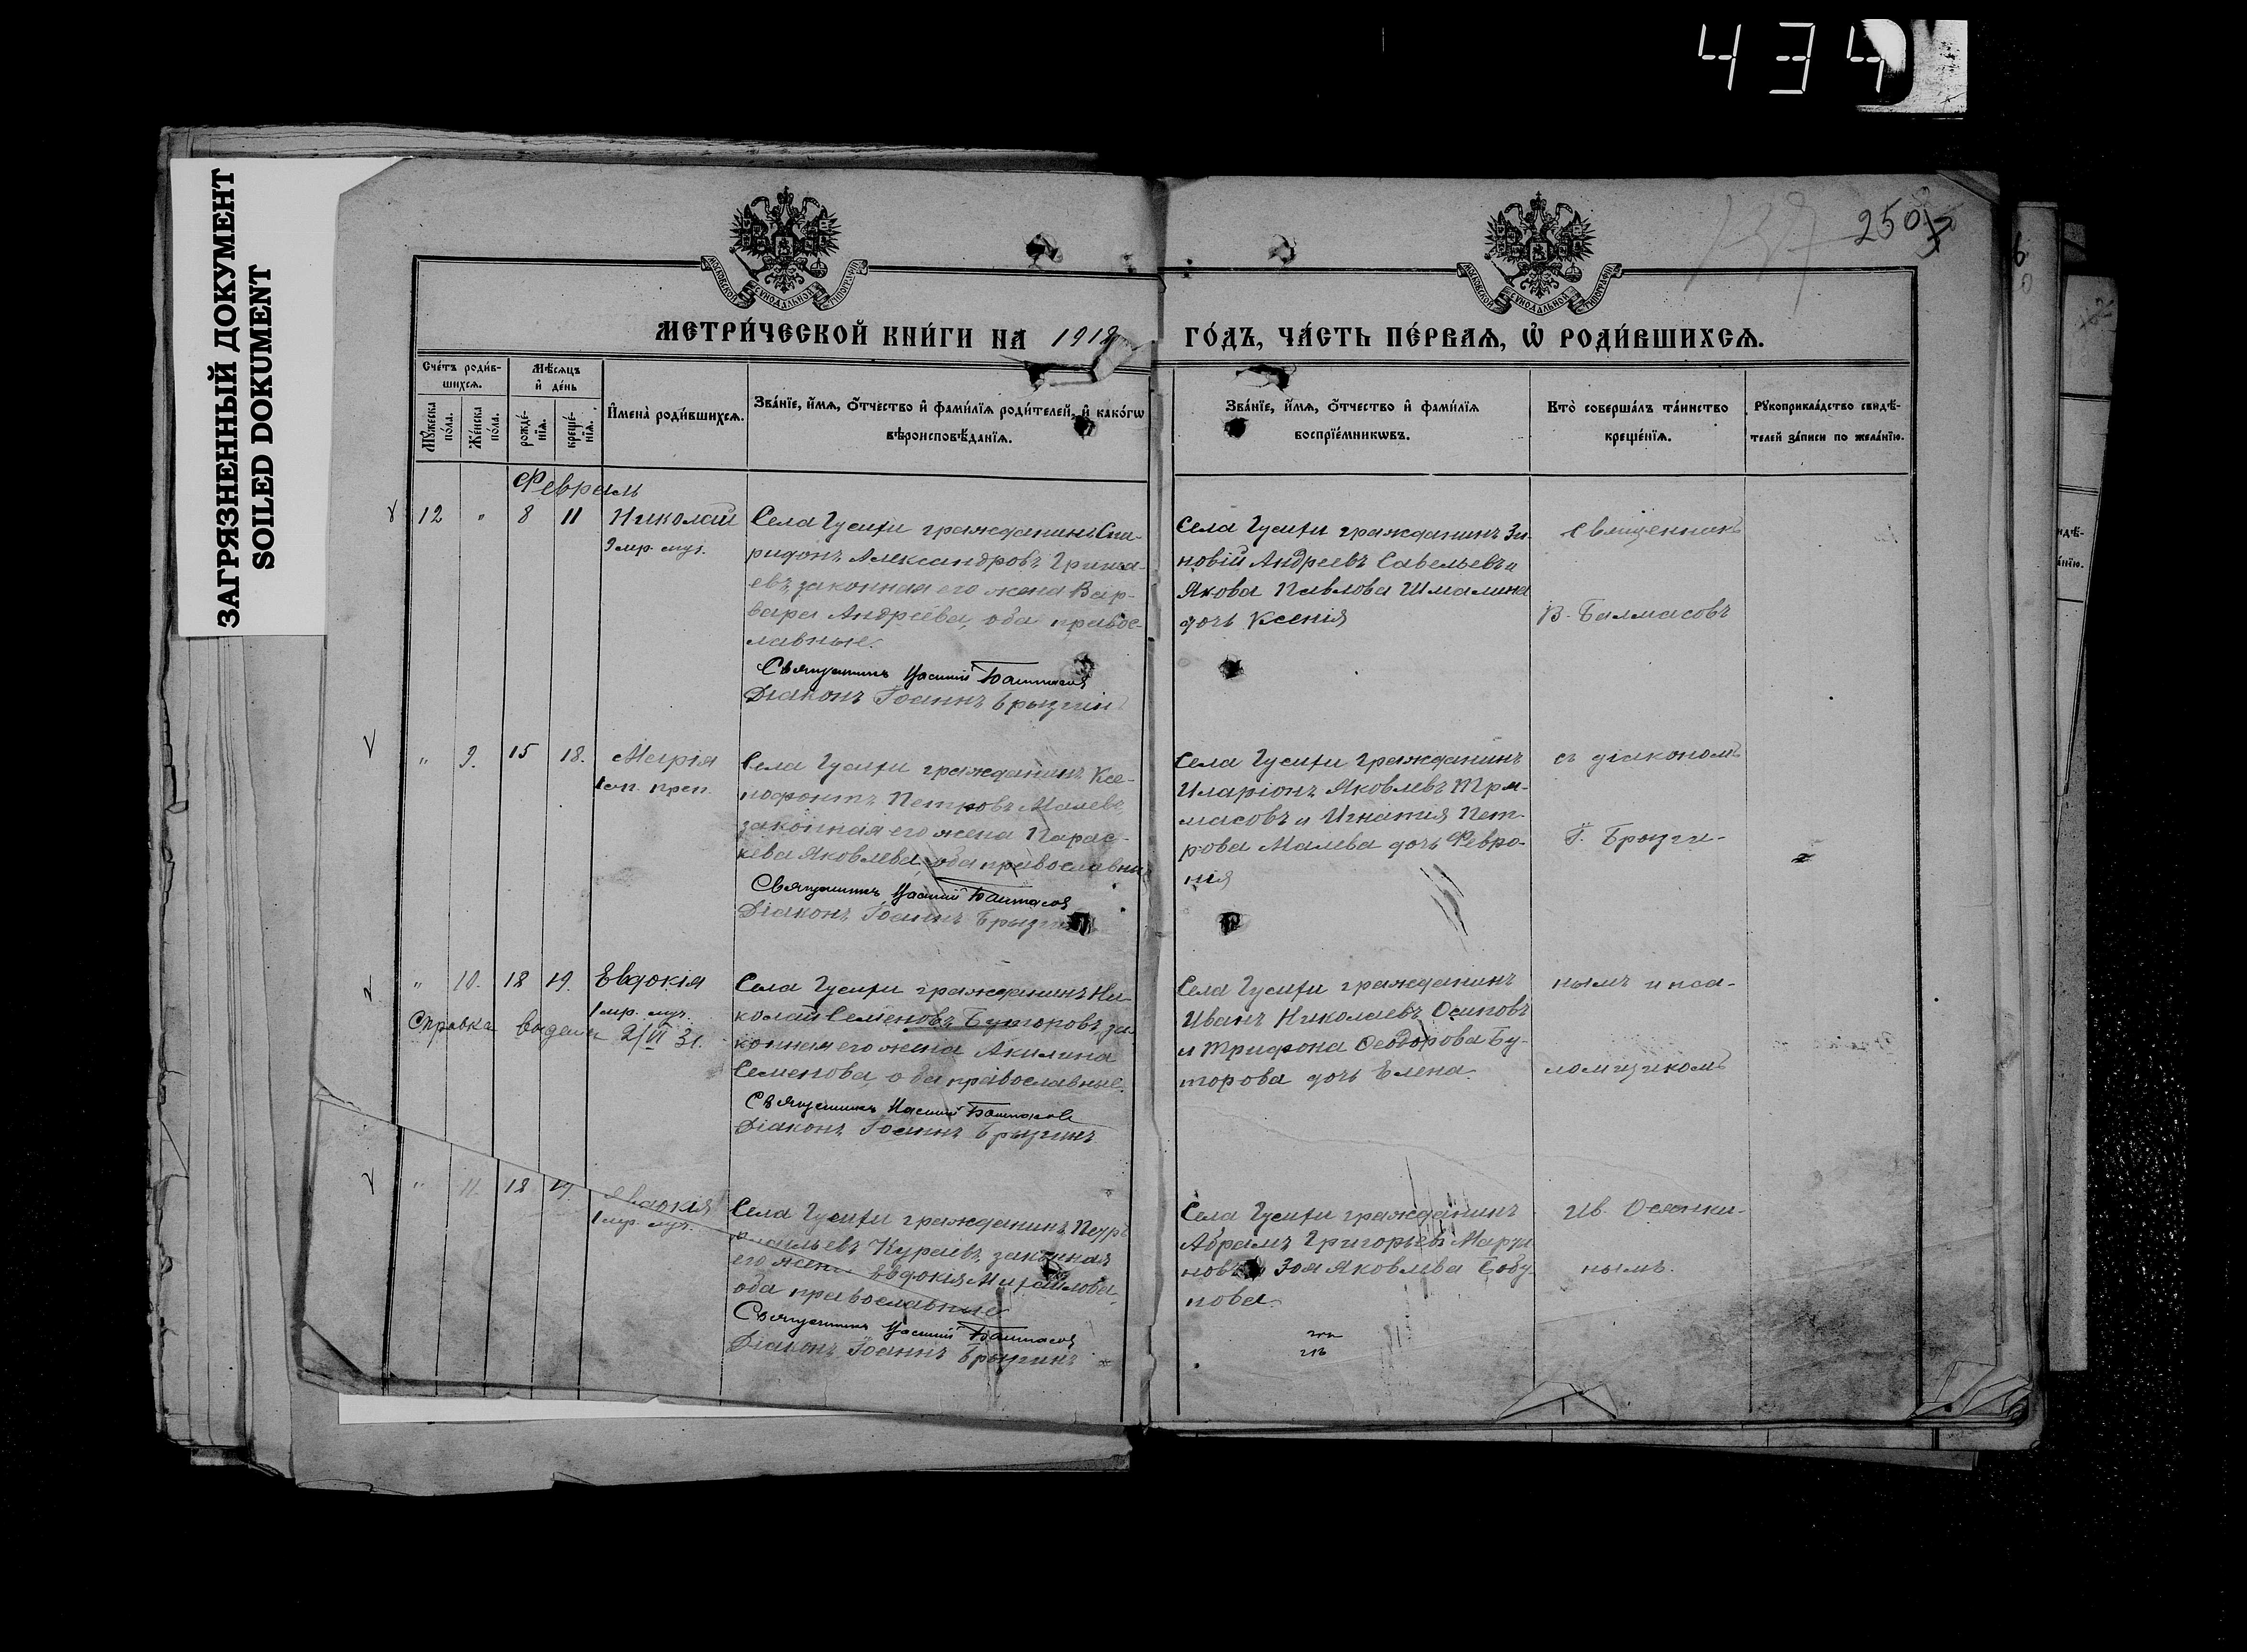 434
ЗАГРЯЗНЕННЫЙ ДОКУМЕНТ
SOILED DOKUMENT
250
МОСКОВСКОЙ СѴНОДАЛЬНОЙ ТИПОГРАФІИ
МОСКОВСКОЙ СѴНОДАЛЬНОЙ ТИПОГРАФІИ
МЕТРИ́ЧЕСКОЙ КНИ́ГИ НА 1918 ГО́ДЪ, ЧА́СТЬ ПЕ́РВАѦ, Ѡ҆ РОДИ́ВШИХСѦ.
Сче́тъ роди́в-
шихсѧ.
Мѣ́сѧцъ
и҆ де́нь
Мꙋ́жеска по́ла.
Же́нска по́ла.
рожде́-нїѧ.
креще́-нїѧ.
И҆мена̀ роди́вшихсѧ.
Зва́нїе, и҆́мѧ, ѻ҆́тчество и҆ фами́лїѧ роди́телей, и҆ како́гѡ
вѣроисповѣ́данїѧ.
Зва́нїе, и҆́мѧ, ѻ҆́тчество и҆ фами́лїѧ
воспрїе́мникѡвъ.
Кто̀ соверша́лъ та́инство
креще́нїѧ.
Рꙋкоприкла́дство свидѣ́-
телей за́писи по жела́нїю.
Февраль
12 " 8 11 Николай
9 мр. муч.
Села Гусихи гражданинъ Спи-
ридонъ Александровъ
законная его жена Вар-
вара Андреева, оба правос-
лавные.
Священникъ Василій Балмасовъ
Діаконъ Іоаннъ Брызгинъ
Села Гусихи гражданинъ Зи-
новій Андреевъ Савельевъ и
Якова Павлова Шмалина
дочь Ксенія
Священникъ
В. Балмасовъ
" 9. 15 18. Марія
преп.
Села Гусихи гражданинъ Ксе-
нофонтъ Петровъ Малевъ,
законная его жена Парас-
кева Яковлева, оба православные
Священникъ Василій Балмасовъ
Діаконъ Іоаннъ Брызгинъ
Села Гусихи гражданинъ
Иларіонъ Яковлевъ
и Игнатия Пет-
рова Малева дочь Февро-
нія
съ діакономъ
І. Брызги-
" 10. 18 19. Евдокія
1 мр. муч.
Справка выдана 2/VI 31.
Села Гусихи гражданинъ Ни-
колай Семеновъ Буторовъ, за-
конная его жена Акилина
Семенова оба православные.
Священникъ Василій Балмасовъ
Діаконъ Іоаннъ Брызгинъ
Села Гусихи гражданинъ
Иванъ Николаевъ Осиповъ
и Трифона Ѳеодорова Бу-
торова дочь Елена.
нымъ и пса-
ломщикомъ
" 11. 18 19. Евдокія
1 мр. муч.
Села Гусихи гражданинъ Петръ
Кураевъ, законная
его жена Евдокія Михайлова,
оба православные
Священникъ Василій Балмасовъ
Діаконъ Іоаннъ Брызгинъ
Села Гусихи гражданинъ
Абрамъ Григорьевъ
Зоя Яковлева
нова.
Ив. Осянки-
нымъ.